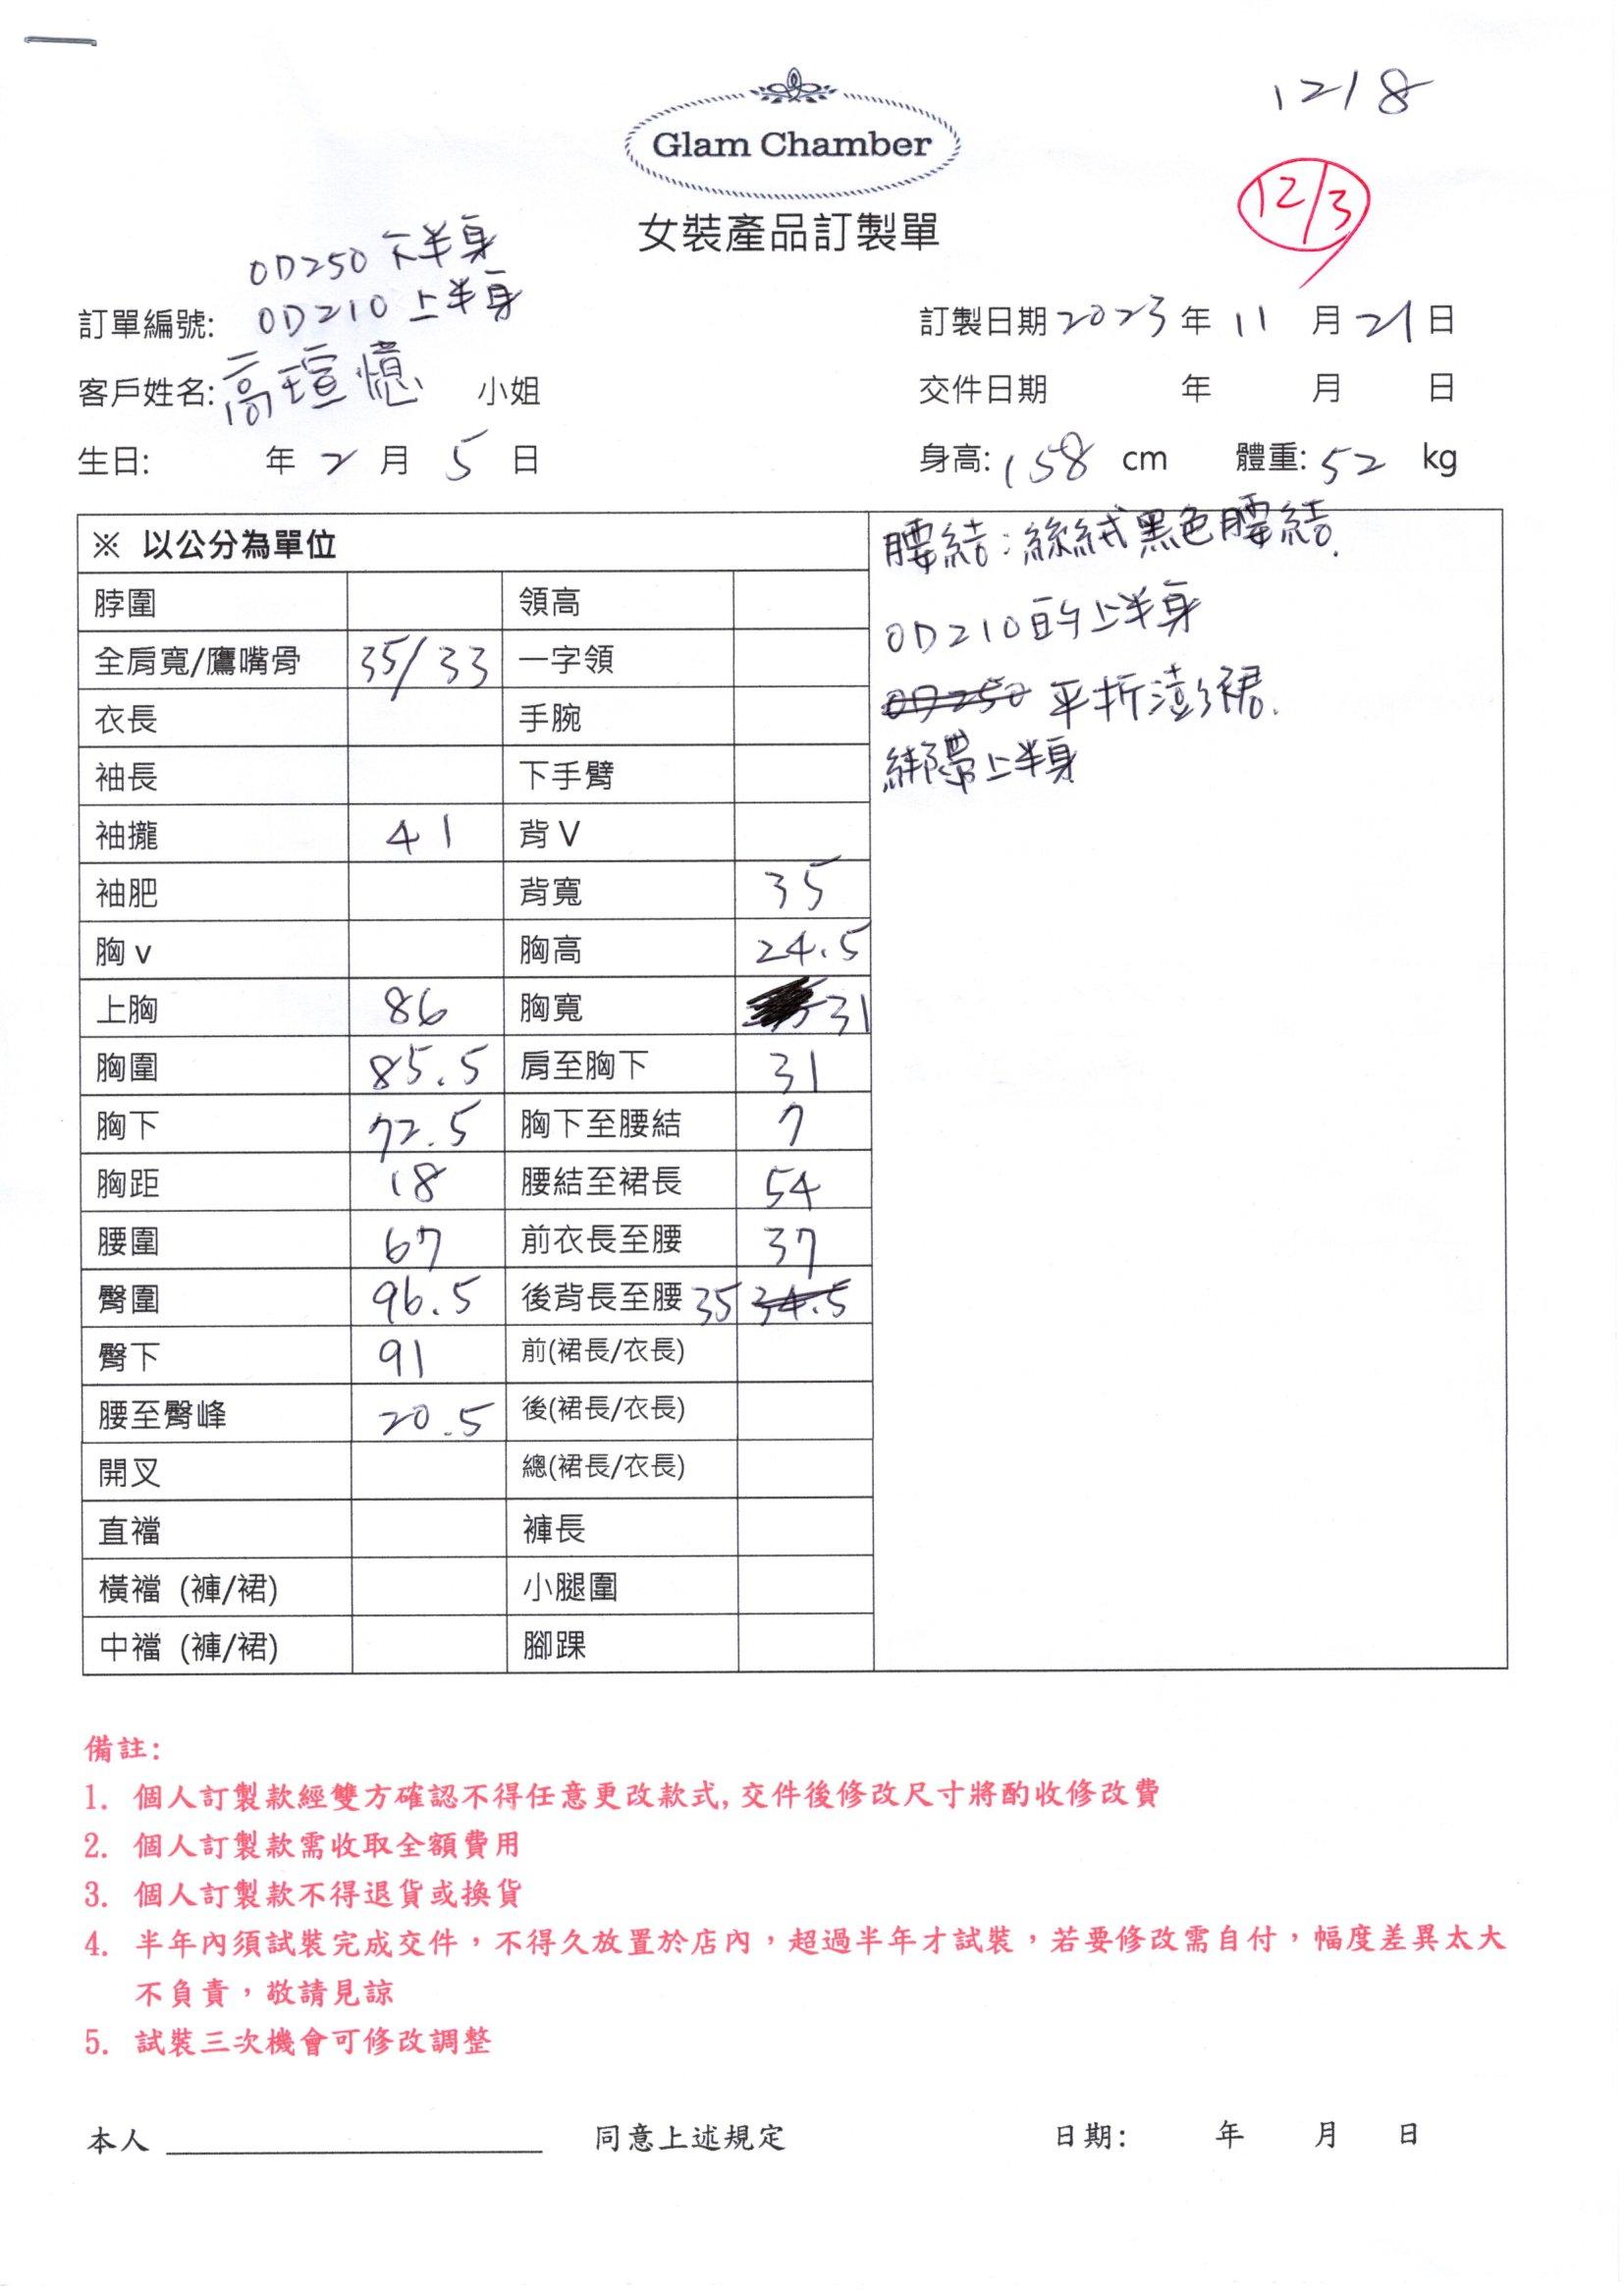 12/8
Glam Chamber
12/3
女裝產品訂製單
OD250 下半身
OD210 上半身
訂單編號:
訂製日期 2023 年 11 月 21 日
客戶姓名: 高瑄憶 小姐
交件日期 年 月 日
生日: 年 2 月 5 日
身高: 158 cm 體重: 52 kg
※ 以公分為單位
腰結:絲絨黑色腰結.
OD210的上半身
OD250 平折澎裙.
綁帶上半身
脖圍 領高
全肩寬/鷹嘴骨 35/33 一字領
衣長 手腕
袖長 下手臂
袖攏 41 背V
袖肥 背寬 35
胸v 胸高 24.5
上胸 86 胸寬 31
胸圍 85.5 肩至胸下 31
胸下 72.5 胸下至腰結 7
胸距 18 腰結至裙長 54
腰圍 67 前衣長至腰 37
臀圍 96.5 後背長至腰 35 34.5
臀下 91 前(裙長/衣長)
腰至臀峰 20.5 後(裙長/衣長)
開叉 總(裙長/衣長)
直襠 褲長
橫襠 (褲/裙) 小腿圍
中襠 (褲/裙) 腳踝
備註:
1. 個人訂製款經雙方確認不得任意更改款式,交件後修改尺寸將酌收修改費
2. 個人訂製款需收取全額費用
3. 個人訂製款不得退貨或換貨
4. 半年內須試裝完成交件，不得久放置於店內，超過半年才試裝，若要修改需自付，幅度差異太大
不負責，敬請見諒
5. 試裝三次機會可修改調整
本人 同意上述規定 日期: 年 月 日